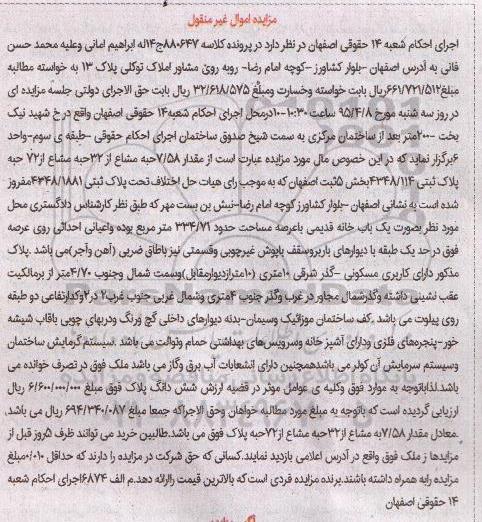 مزایده اموال غیر منقول
اجرای احکام شعبه ۱۴ حقوقی اصفهان در نظر دارد در پرونده کلاسه ۸۸۰۶۴۷ج۱۴له ابراهیم امانی وعلیه محمد حسن
فانی به آدرس اصفهان -بلوار کشاورز -کوچه امام رضا- روبه روی مشاور املاک توکلی پلاک ۱۳ به خواسته مطالبه
مبلغ۶۶۱/۷۲۱/۵۱۲ریال بابت خواسته وخسارت ومبلغ ۳۲/۶۱۸/۵۷۵ ریال بابت حق الاجرای دولتی جلسه مزایده ای
در روز سه شنبه مورخ ۹۵/۴/۸ ساعت ۱۰:۳۰-۱۰درمحل اجرای احکام شعبه۱۴ حقوقی اصفهان واقع در خ شهید نیک
بخت -۲۰۰متر بعد از ساختمان مرکزی به سمت شیخ صدوق ساختمان اجرای احکام حقوقی -طبقه ی سوم-واحد
۶برگزار نماید که در این خصوص مال مورد مزایده عبارت است از مقدار ۷/۵۸حبه مشاع از ۳۲حبه مشاع از۷۲ حبه
پلاک ثبتی ۴۳۴۸/۱۱۴بخش ۵ثبت اصفهان که به موجب رای هیات حل اختلاف تحت پلاک ثبتی ۴۳۴۸/۱۸۸۱مفروز
شده است به نشانی اصفهان -بلوار کشاورز کوچه امام رضا-نبش بن بست مهر که طبق نظر کارشناس دادگستری محل
مورد نظر بصورت یک باب خانه قدیمی باعرصه مساحت حدود ۳۳۴/۷۱ متر مربع بوده واعیانی احداثی روی عرصه
فوق در حد یک طبقه با دیوارهای باربروسقف باپوش غیرچوبی وقسمتی نیز باطاق ضربی (آهن وآجر)می باشد .پلاک
مذکور دارای کاربری مسکونی -گذر شرقی ۱۰متری (۱۰متراز‌دیوارمقابل)وسمت شمال وجنوب ۴/۷۰متر از برمالکیت
عقب نشینی داشته وگذرشمال مجاور در غرب وگذر جنوب ۶متری وشمال غربی جنوب غرب۲ در۲وکدارتفاعی دو طبقه
روی پیلوت می باشد .کف ساختمان موزائیک وسیمان-بدنه دیوارهای داخلی گچ ورنگ ودربهای چوبی باقاب شیشه
خور-پنجره‌های فلزی ودارای آشپز خانه وسرویس‌های بهداشتی حمام وتوالت می باشد .سیستم گرمایش ساختمان
وسیستم سرمایش آن کولر می باشدهمچنین دارای انشعابات آب برق وگاز می باشد ملک فوق در تصرف خوانده می
باشد.لذاباتوجه به موارد فوق وکلیه ی عوامل موثر در قضیه ارزش شش دانگ پلاک فوق مبلغ ۶/۶۰۰/۰۰۰/۰۰۰ ریال
ارزیابی گردیده است که باتوجه به مبلغ مورد مطالبه خواهان وحق الاجراکه جمعا مبلغ ۶۹۴/۳۴۰/۰۸۷ ریال می باشد
.معادل مقدار ۷/۵۸به مشاع از۳۲حبه مشاع از۷۲حبه پلاک فوق می باشد.طالبین خرید می توانند ظرف ۵روز قبل از
مزایدها ز ملک فوق واقع در آدرس اعلامی بازدید نمایند.کسانی که حق شرکت در مزایده را دارند که حداقل ۰/۰۱۰مبلغ
مزایده رابه همراه داشته باشند.برنده مزایده فردی است که بالاترین قیمت راارائه دهد.م الف ۶۸۷۴اجرای احکام شعبه
۱۴ حقوقی اصفهان